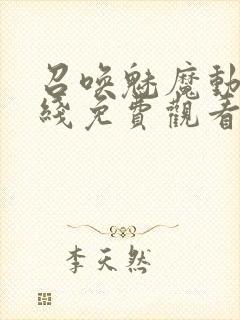 召喚魅魔動
綫免費觀看
李天然